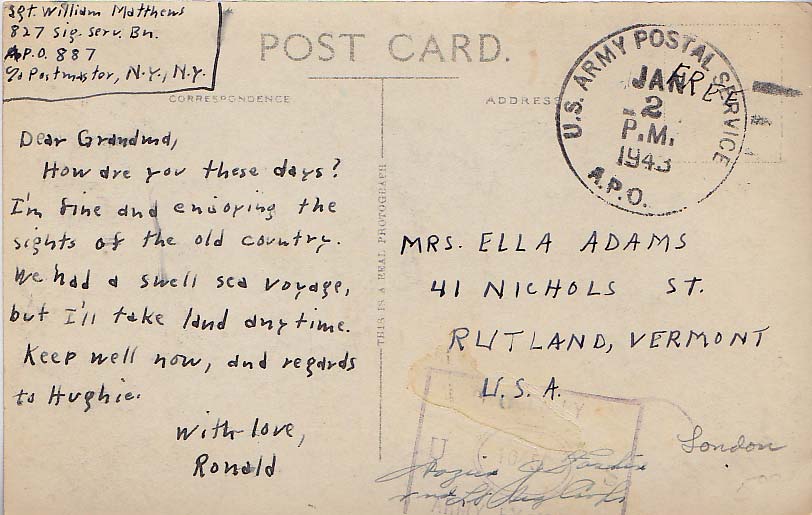 Sgt. William Matthews
827 Sig. Serv. Bn.
A.P.O. 887
c/o Postmaster, N.Y., N.Y.
POST CARD.
CORRESPONDENCE
ADDRESS
FREE
U.S. ARMY POSTAL SERVICE
JAN
2
P.M.
1943
A.P.O.
Dear Grandma,
How are you these days?
I'm fine and enjoying the
sights of the old country.
We had a swell sea voyage,
but I'll take land anytime.
Keep well now, and regards
to Hughie.
With love,
Ronald
THIS IS A REAL PHOTOGRAPH
MRS. ELLA ADAMS
41 NICHOLS ST.
RUTLAND, VERMONT
U.S.A.
London